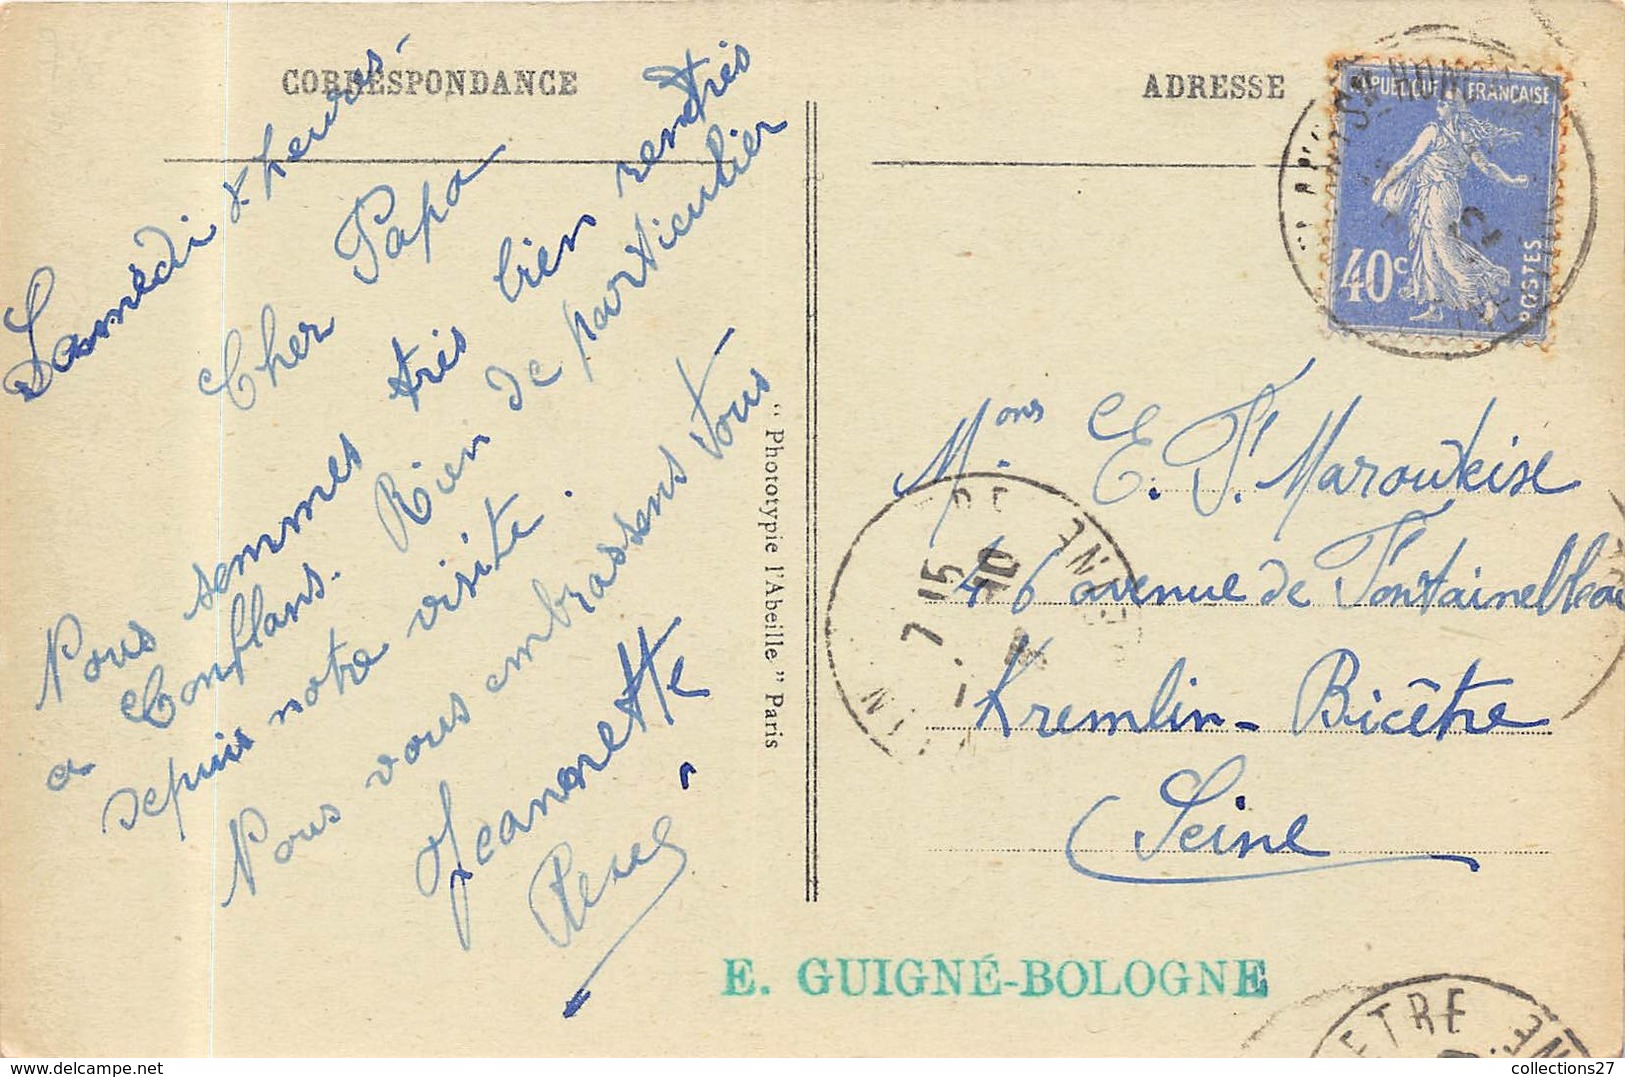 CORRESPONDANCE
Samedi 8 heures
Cher Papa
Nous sommes très bien rentrés
a Conflans. Rien de particulier
depuis notre visite.
Nous vous embrassens tous
Jeannette
"Phototypie l'Abeille" Paris
ADRESSE
RÉPUBLIQUE FRANÇAISE
40c
POSTES
Mons. E. F. Maroukise
46 avenue de Fontainebleau
Kremlin-Bicêtre
Seine
7 15
10
E. GUIGNÉ-BOLOGNE
ETRE
collections27